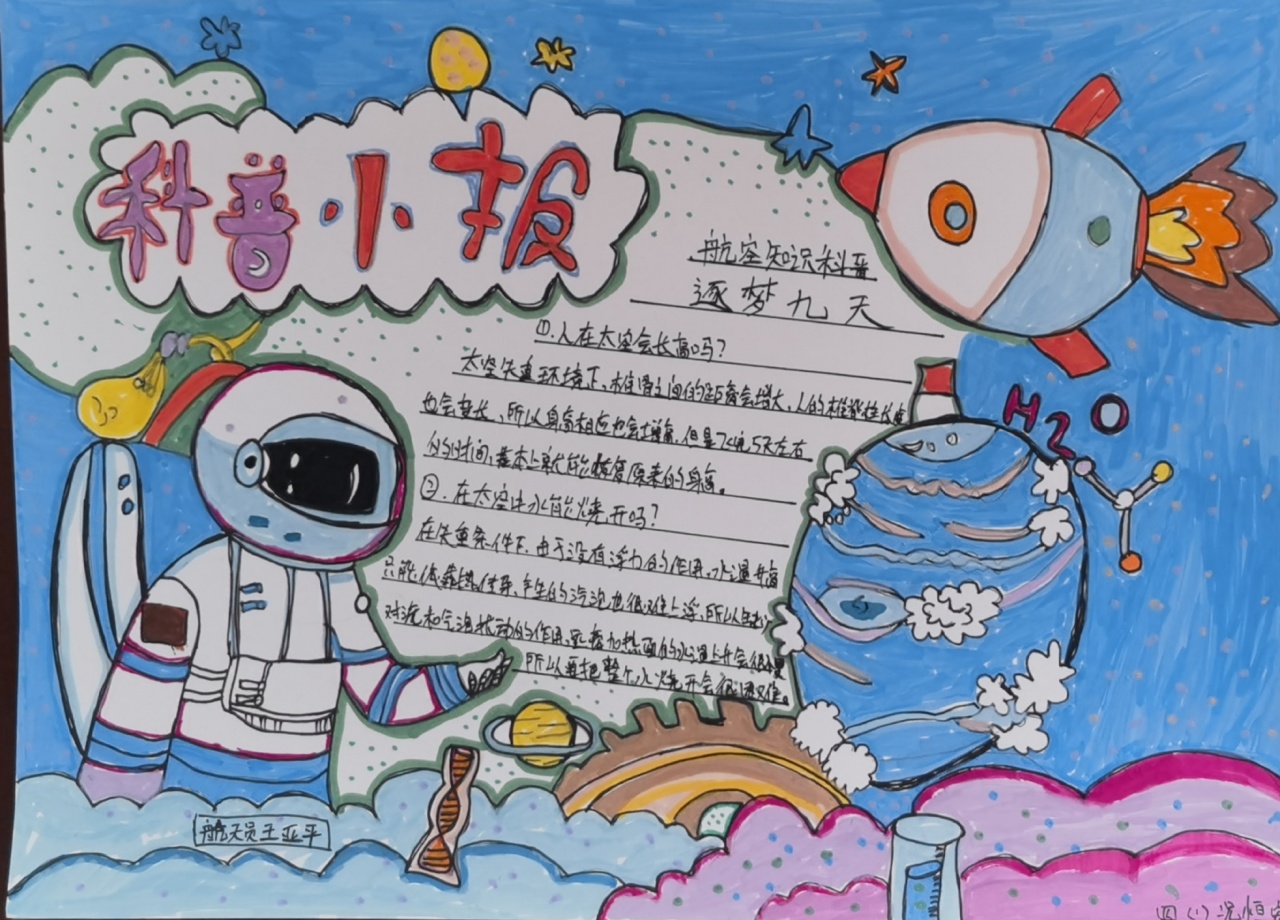 科普小报
航空知识科普
逐梦九天
①.人在太空会长高吗?
太空失重环境下,椎骨之间的距离会增大,人的椎脊柱长度
也会其长,所以身高相应也会增高,但是大概5天左右
的时间,基本上就能恢复原来的身高。
②.在太空中水能烧开吗?
在失重条件下,由于没有浮力的作用,水温升高
只能依靠热传导,产生的汽泡也很难上浮,所以
对流和气泡扰动的作用,距离加热面的水温上升会很
所以要把整个水烧开会很困难。
H2O
航天员王亚平
四(1)